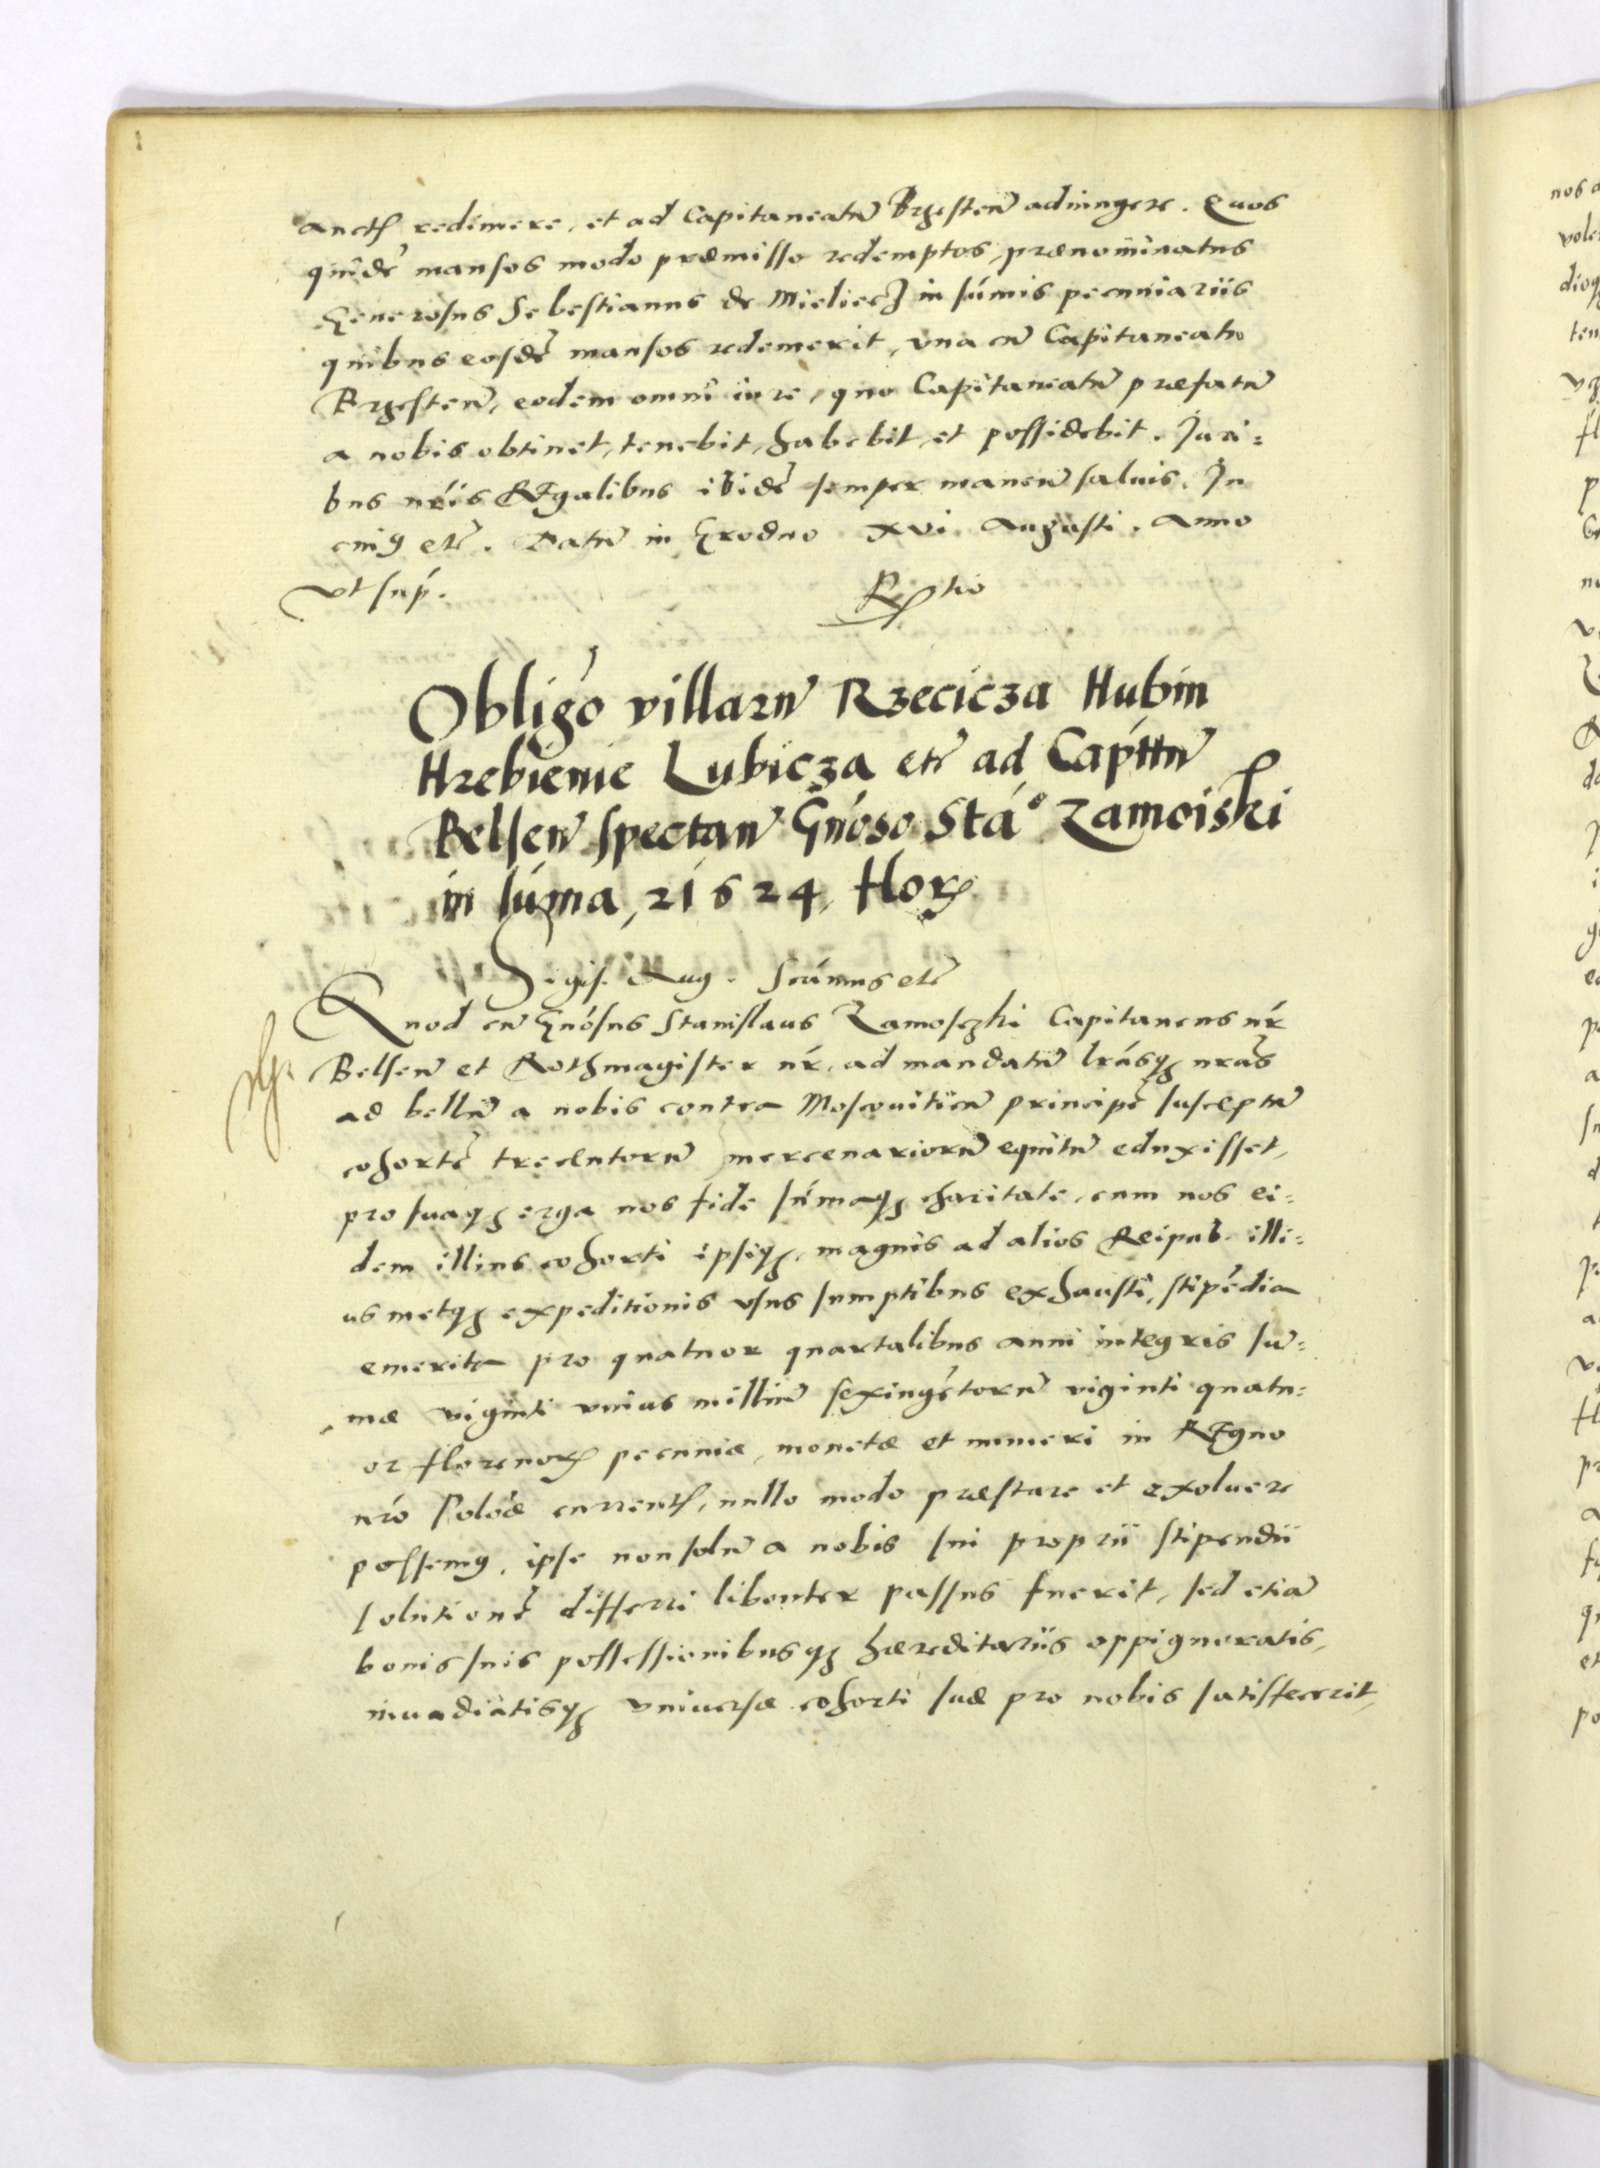 auctē redimere, et ad Capitaneatū Brzestenū adiungere. Quos
quidē mansos modo præmisso redemptos, prænominatus
Generosus Sebestianus de Mieliecz in súmis pecuniariis
quibus eosdē mansos redemerit, vna cū Capitaneatu
Brzestenū, eodem omni iure, quo Capitaneatū præfatū
a nobis obtinet, tenebit, habebit, et possidebit. Juri=
bus nr̃is Regalibus ibidē semper manenū saluis. In
cuiꝯ etc̃. Datū in Grodno xvi. Augusti. Anno
vt sup̃.
Obligo͂ villarū Rzecicza Hubin
Hrebienie Lubicza etc̃ ad Capittū
Belsenū spectanū Gnóso Stáo Zamoiski
in súma, 21624, floꝝ
Sigis. Aug. Scimus etc̃
Quod cū Gnósus Stanislaus Zamoiczki Capitaneus nr̃
Belsenū et Rothmagister nr̃, ad mandatū lrásqꝫ nrás
ad bellū a nobis contra Moscouiticū principē susceptū
cohortē trecentorū mercenariorū equitū eduxisset,
pro suaqꝫ erga nos fide súmaqꝫ charitate, cum nos ei=
dem illius cohorti ipsiqꝫ, magnis ad alios Reipub. illi=
us metqꝫ expeditionis vsus sumptibus exhausti, stipēdia
emerita pro quatuor quartalibus anni integris sū=
mæ viginti vnius milliū sexingētorū viginti quatu=
or florenoꝝ pecuniæ, monetæ et numeri in Regno
nró Polóæ currentē, nullo modo præstare et exoluere
possemꝯ, ipse non solū a nobis sui proprii stipendii
solutionē differri libenter passus fuerit, sed etiā
bonis suis possessionibusqꝫ hæreditariis oppigneratis,
inuadiatisqꝫ vniuersæ cohorti suæ pro nobis satisfecerit,